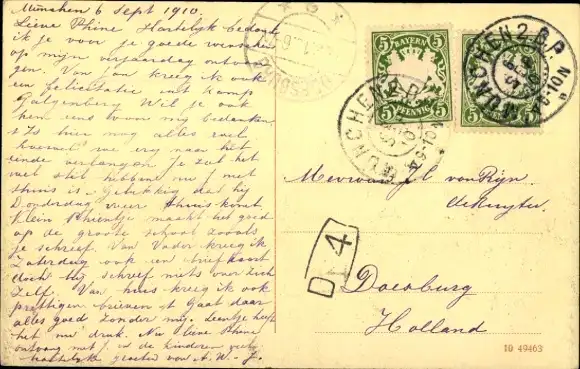 München 6 Sept 1910.
Lieve Phine Hartelijk bedank
ik je voor je goede wenschen
op mijn verjaardag ontvan
gen. Van Jan kreeg ik ook
een felicitatie uit kamp
Galgenberg Wil je ook
hem eens voor mij bedanken
is hier nog alles wel
hoewel we erg naar het
einde verlangen Je zal het
wel stil hebben nu J niet
thuis is. Gelukkig dat hij
Donderdag weer thuis komt
Klein Phientje maakt het goed
op de groote school zooals
je schreef. Van Vader kreeg ik
Zaterdag ook een brief kaart
doch hij schreef niets over zich
zelf. Van huis kreeg ik ook
prettige brieven Gaat daar
alles goed zonder mij. Leentje heeft
het nu druk. Nu lieve Phine
ontvang met J en de kinderen veel
hartelijke groeten van A. W. J.
BAYERN
5 PFENNIG 5
5 5
MÜNCHEN 2 B.P.
6 SEP
9-10N
MÜNCHEN 2 B.P.
9-10N
DOESBURG
Mevrouw J C van Rijn
de Ruyter
D 4
Doesburg
Holland
10 49463